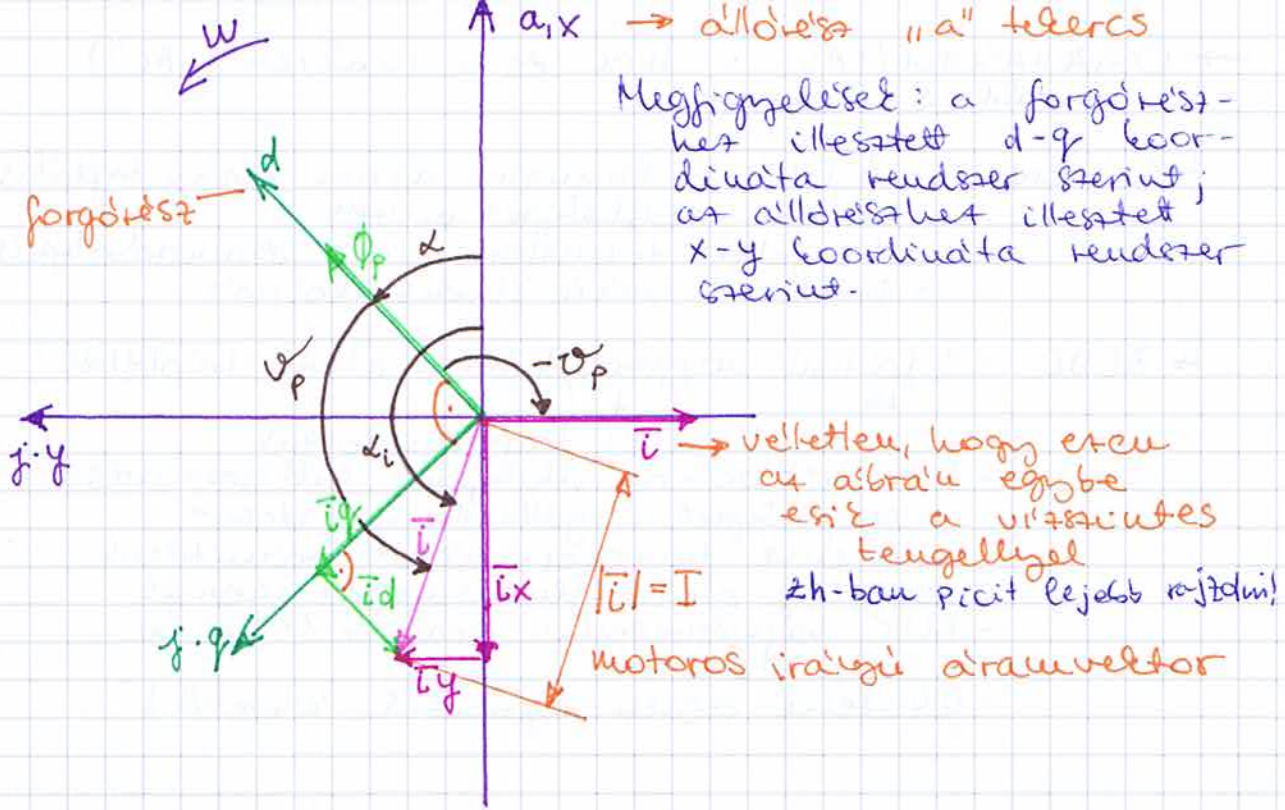 w
a,x → állórész „a" tekercs
Megfigyelések: a forgórész-
hez illesztett d-q koor-
dináta rendszer szerint;
az állórészhez illesztett
x-y koordináta rendszer
szerint.
d
forgórész
ϕp
α
ϑp
-ϑp
j·y
αi
i → véletlen, hogy ezen
az ábrán egybe
esik a vízszintes
tengellyel
zh-ban picit lejjebb rajzolni!
iq
i
id
ix
|i| = I
j·q
iy
motoros irányú áramvektor